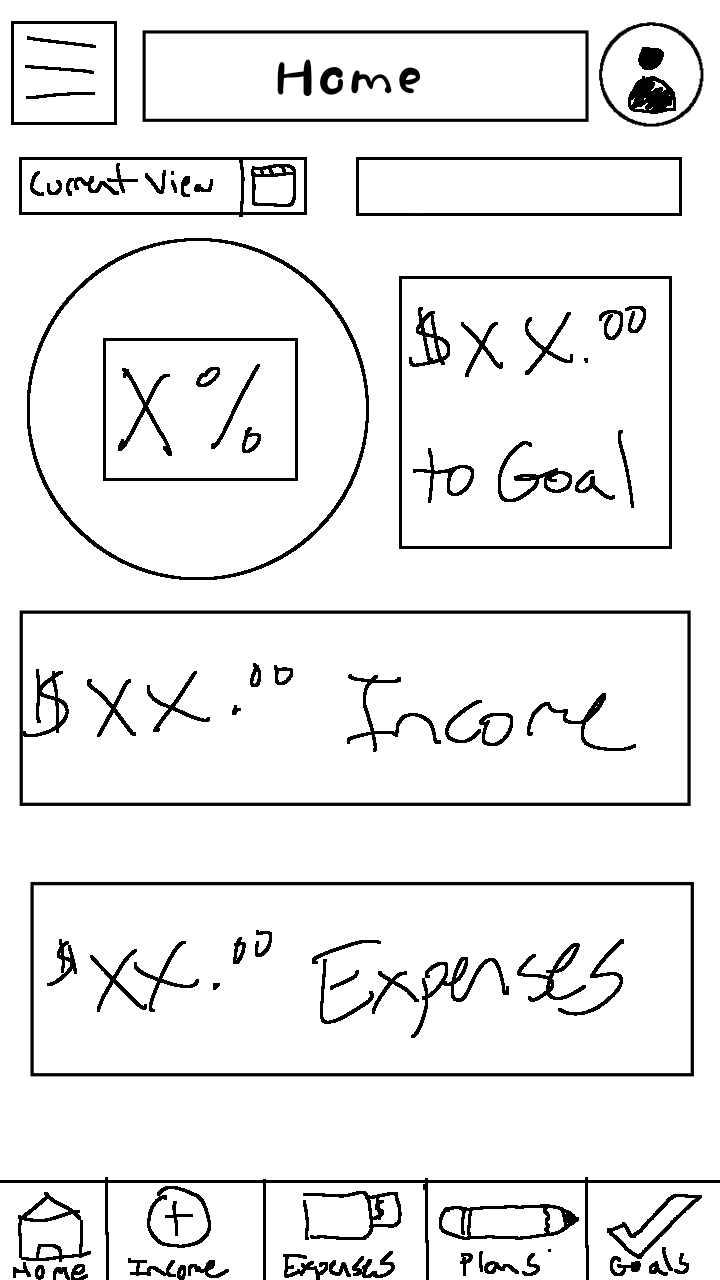 Home
Current View
X%
$XX.00
to Goal
$XX.00 Income
$XX.00 Expenses
$
Home Income Expenses Plans Goals